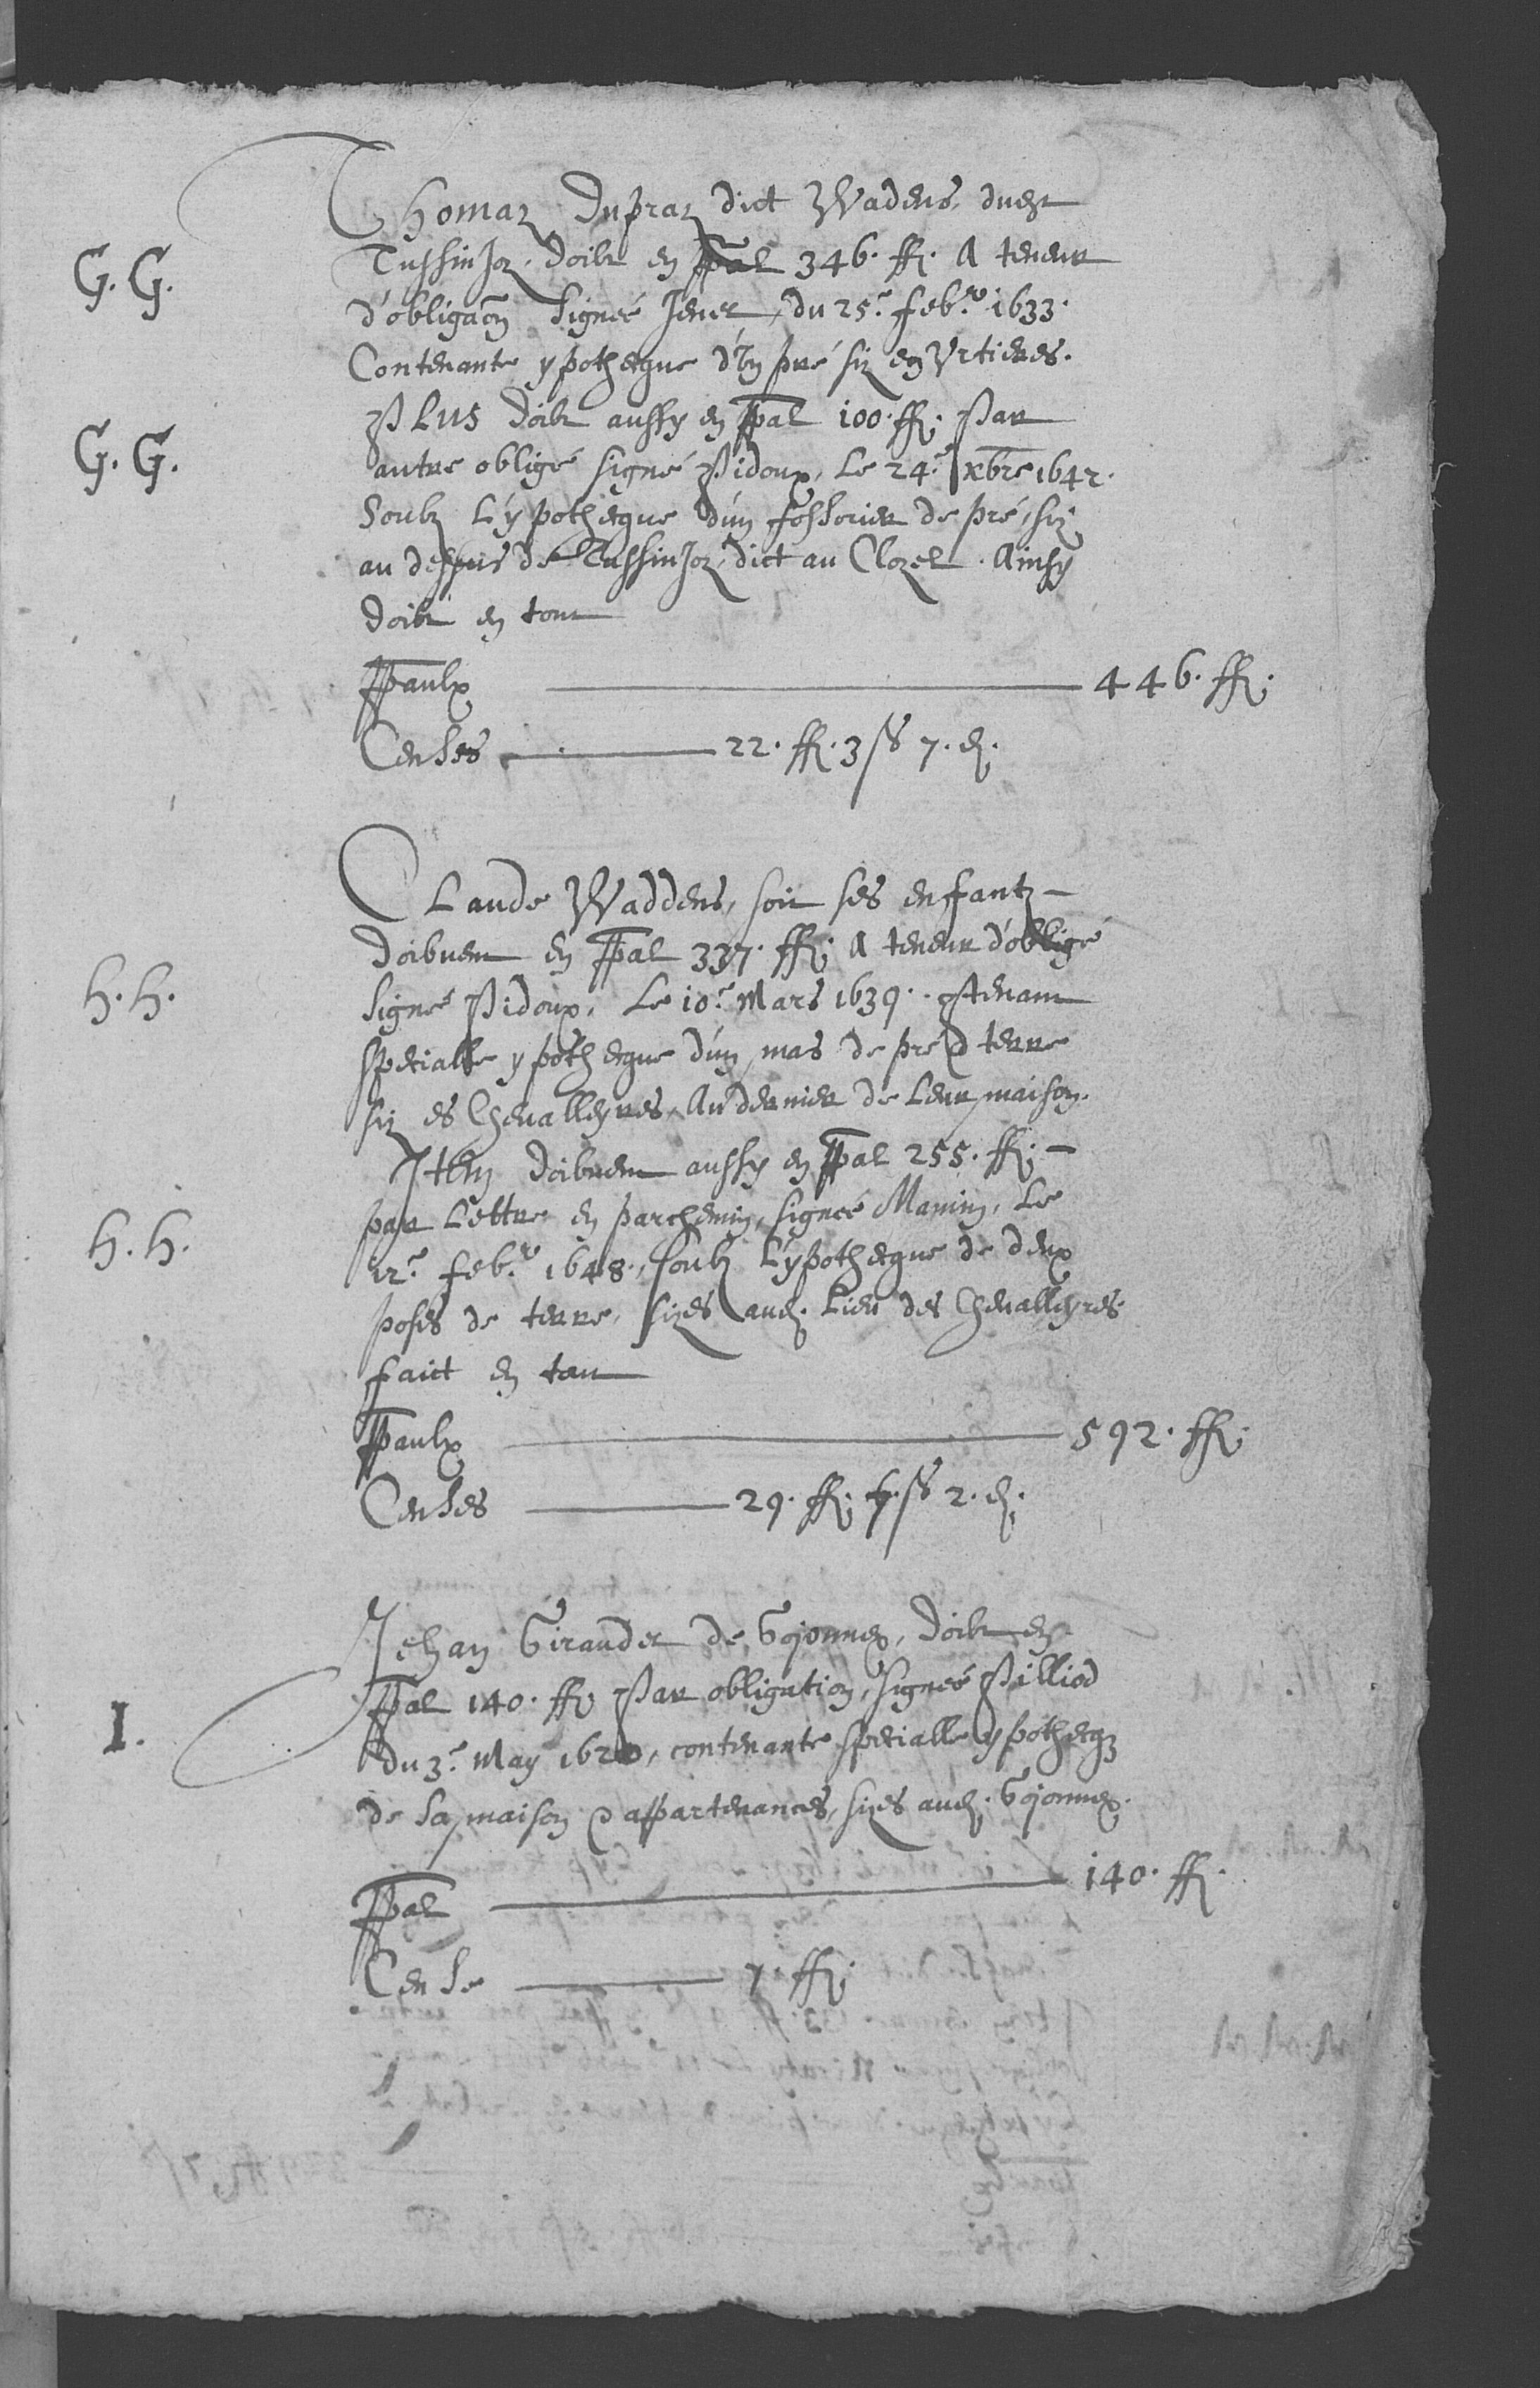 Thomaz Dupraz dict Wadens, duest
G. G.
Tussinjoz, doibt en ppal 346. ff. A teneur
d'obligaon Signeé Jenet, du 25.e feb.r 1633.
Contenante ypothecque d'un pré siz en Vrtieres.
G. G.
PLUS doibt aussy en ppal 100. ff. Par
autre obligé signé Pidoux, Le 24.e xbre 1642.
Soubz L'ypothecque d'un fossorier de pré, siz
au dessus de Tussinjoz, dict au Clozel. Ainsy
doibt en tout
Ppaulx 446. ff.
Censes 22. ff. 3 ss 7. d.
CLaude Waddens, soit ses enfantz
doibvent en ppal 337. ff. A teneur d'obligé
H. H.
signé Pidoux, Le 10.e Mars 1639. contenant
specialle ypothecque d'un mas de pré & terre
siz es Chevalleyres, Au dernier de Leur maison.
Item doibvent aussy en ppal 255. ff.
H. H.
par Lettre en parchemin, signeé Manin, Le
12.e feb.r 1648, soubz L'ypothecque de deux
poses de terre, sizes aud. Lieu des Chevalleyres
faict en tout
Ppaulx 592. ff.
Censes 29. ff. 7. ss 2. d.
Jehan Giraudet de Gojonnex, doibt en
I.
ppal 140. ff. Par obligation, signeé Pilliod
du 3.e May 1620, contenante specialle ypothecq
de Sa maison & appartenances, sizes aud. Gojonnex.
Ppal 140. ff.
Cense 7. ff.